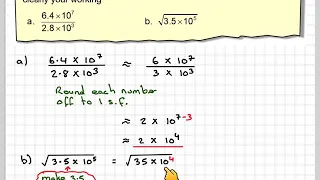 clearly your working
a. 6.4 × 10⁷ / 2.8 × 10³ b. √3.5 × 10⁵
a) 6.4 × 10⁷ / 2.8 × 10³ ≈ 6 × 10⁷ / 3 × 10³
Round each number
off to 1 s.f.
≈ 2 × 10⁷⁻³
≈ 2 × 10⁴
b) √3.5 × 10⁵ = √35 × 10⁴
make 3.5